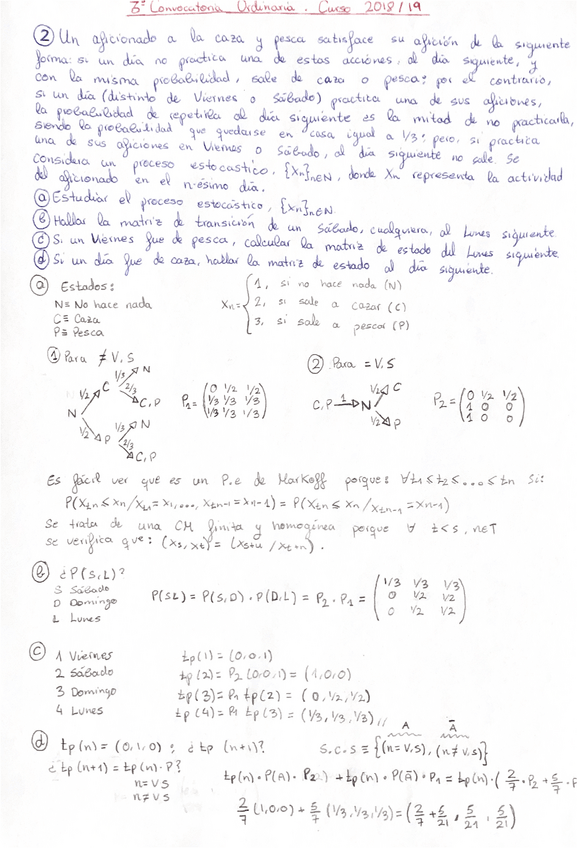 3ª Convocatoria Ordinaria. Curso 2018/19
② Un aficionado a la caza y pesca satisface su afición de la siguiente
forma: si un día no practica una de estas acciones, al día siguiente, y
con la misma probabilidad, sale de caza o pesca; por el contrario,
si un día (distinto de Viernes o Sábado) practica una de sus aficiones,
la probabilidad de repetirla al día siguiente es la mitad de no practicarla,
siendo la probabilidad que quedarse en casa igual a 1/3; pero, si practica
una de sus aficiones en Viernes o Sábado, al día siguiente no sale. Se
considera un proceso estocastico, {Xn}nEN, donde Xn representa la actividad
del aficionado en el n-ésimo día.
ⓐ Estudiar el proceso estocástico, {Xn}nEN.
ⓑ Hallar la matriz de transición de un Sábado, cualquiera, al Lunes siguiente.
ⓒ Si un Viernes fue de pesca, calcular la matriz de estado del Lunes siguiente.
ⓓ Si un día fue de caza, hallar la matriz de estado al día siguiente.
ⓐ Estados:
N ≡ No hace nada
C ≡ Caza
P ≡ Pesca
Xn = { 1, si no hace nada (N)
2, si sale a cazar (C)
3, si sale a pescar (P)
① Para ≠ V, S
N 1/2 C 1/3 N 2/3 C, P
1/2 P 1/3 N 2/3 C, P
P1 = (0 1/2 1/2
1/3 1/3 1/3
1/3 1/3 1/3)
② Para = V, S
C, P 1 N 1/2 C
1/2 P
P2 = (0 1/2 1/2
1 0 0
1 0 0)
Es fácil ver que es un P.e de Markoff porque: ∀t1≤t2≤...≤tn Si:
P(Xtn ≤ xn / Xt1 = x1, ..., Xtn-1 = xn-1) = P(Xtn ≤ xn / Xtn-1 = xn-1)
Se trata de una CM finita y homogénea porque ∀ t<s, n∈T
se verifica que: (Xs/Xt) = (Xs+n / Xt+n).
ⓑ ¿P(S,L)?
S Sábado
D Domingo
L Lunes
P(S,L) = P(S,D) · P(D,L) = P2 · P1 = (1/3 1/3 1/3
0 1/2 1/2
0 1/2 1/2)
ⓒ 1 Viernes tp(1) = (0,0,1)
2 Sábado tp(2) = P2 (0,0,1) = (1,0,0)
3 Domingo tp(3) = P1 tp(2) = (0, 1/2, 1/2)
4 Lunes tp(4) = P1 tp(3) = (1/3, 1/3, 1/3) //
ⓓ tp(n) = (0,1,0) ; ¿tp (n+1)?
A Ā
S.C.S ≡ {(n = V,S), (n ≠ V,S)}
¿tp(n+1) = tp(n) · P?
n = V S
n ≠ V S
tp(n) · P(A) · P2 + tp(n) · P(Ā) · P1 = tp(n) · (2/7 · P2 + 5/7 · P
2/7 (1,0,0) + 5/7 (1/3, 1/3, 1/3) = (2/7 + 5/21, 5/21, 5/21)